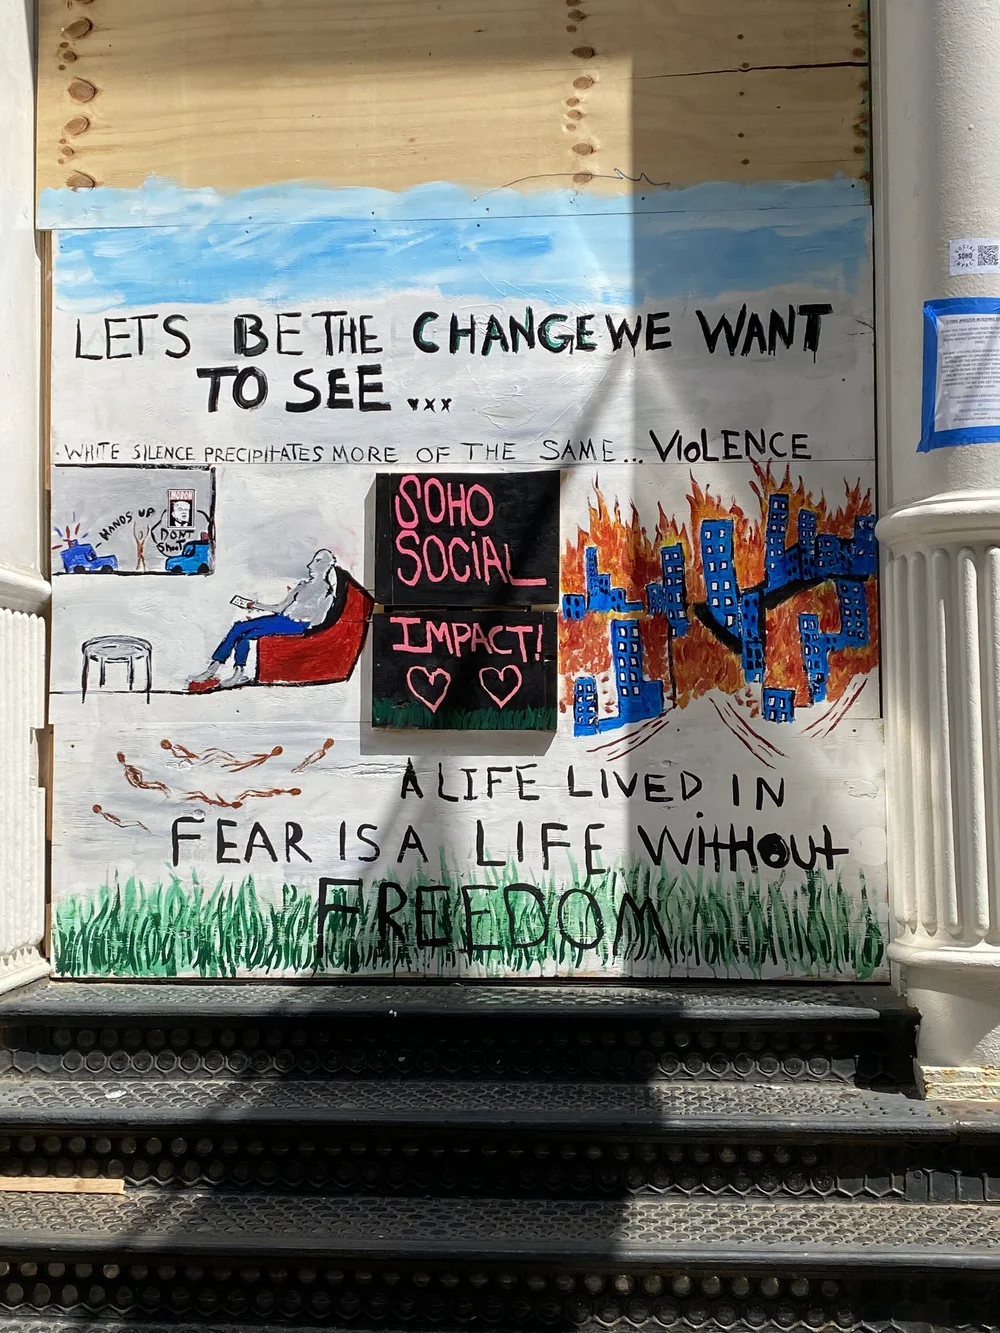 LETS BE THE CHANGE WE WANT
TO SEE...
WHITE SILENCE PRECIPITATES MORE OF THE SAME... VIOLENCE
MORON
HANDS UP
DONT
Shoot
SOHO
SOCiAL
IMPACT!
A LIFE LIVED IN
FEAR IS A LIFE WiTHOUT
FREEDOM
SOCIAL
SOHO
IMPACT